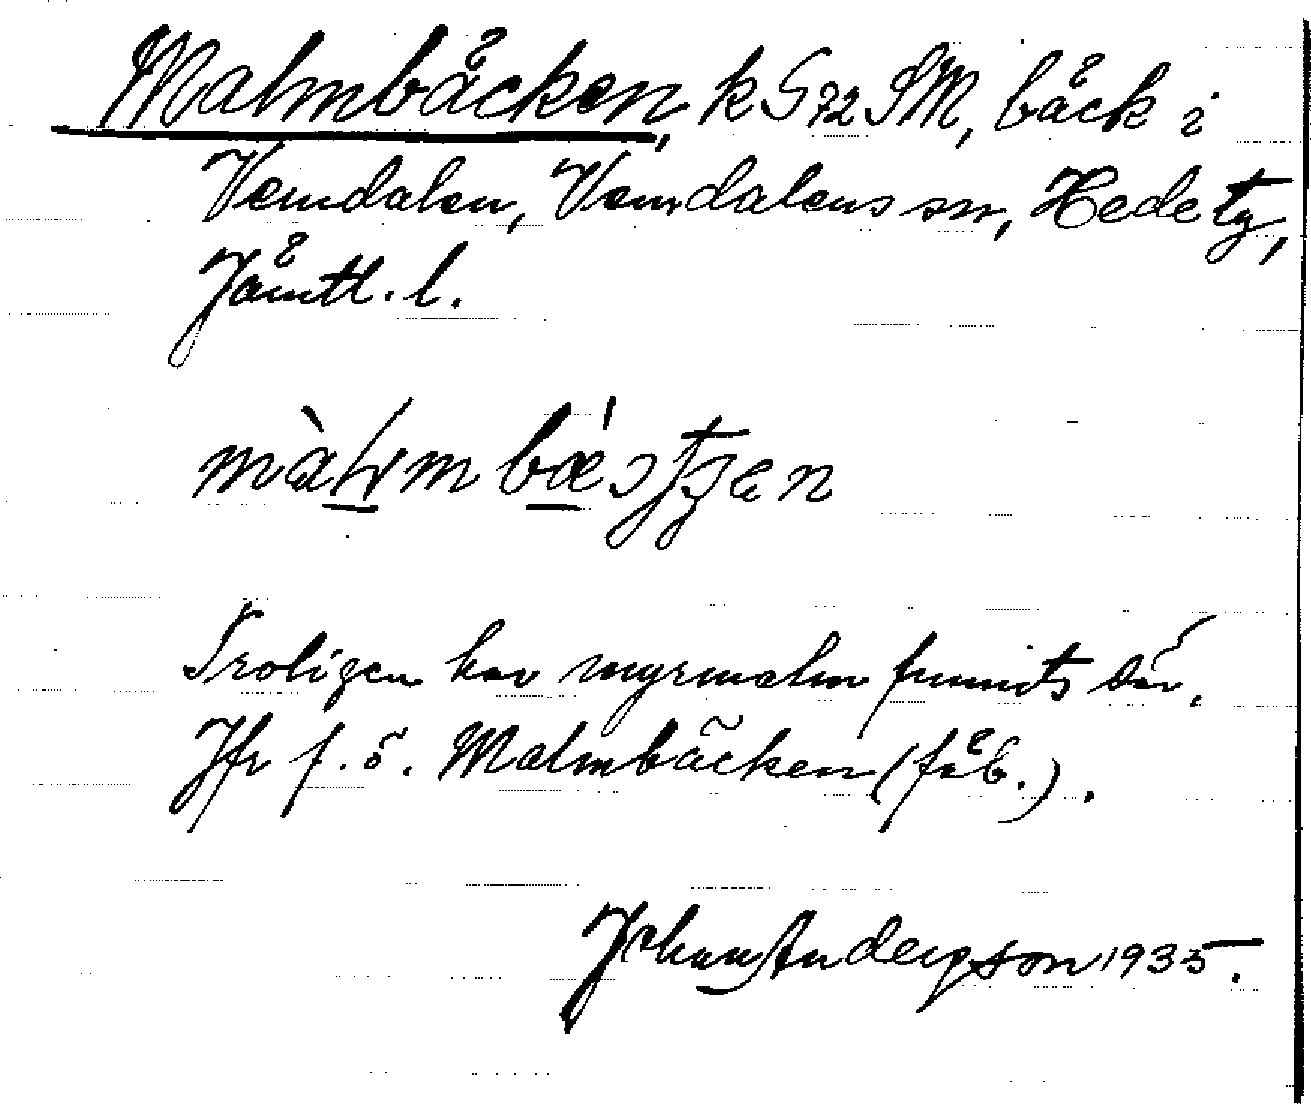 Malmbäcken, k G72 SM, bäck i
Vemdalen, Vemdalens sn, Hede tg,
Jämtl. l.
Troligen har myrmalm funnits där.
Jfr f. ö. Malmbäcken (fäb.).
Johan Andersson 1935.